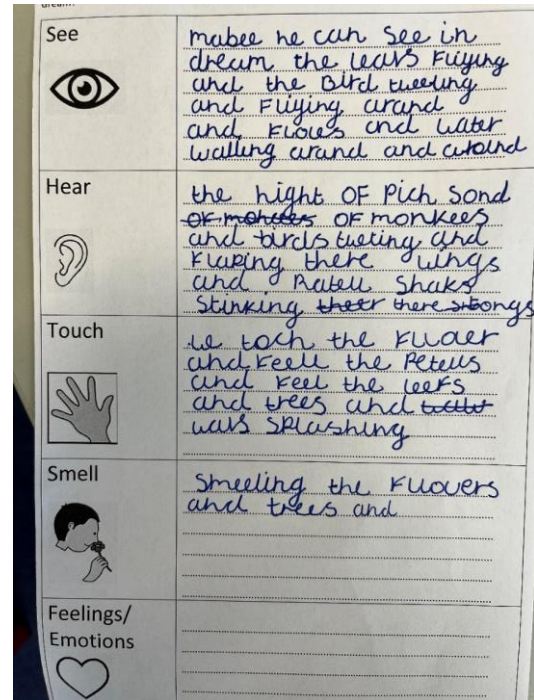 dream?
See
mabee he can see in
dream the leavs Fliying
and the Bird tweeting
and Fliying arand
and Flowes and water
walling arand and around
Hear
the hight OF Pich Sond
OF monkees
and birds tweting and
Flaping there wings
and Ratell Shaks
Stinking there tongs
Touch
toch the Fluwer
and Feell the Petells
and Feel the leefs
and trees and
wavs Splashing
Smell
Smeeling the Fluwers
and trees and
Feelings/
Emotions